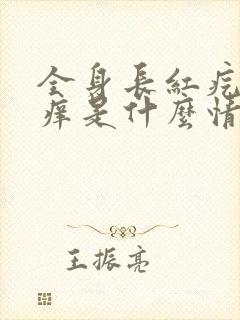 全身長紅疙
癢是什麼情
王振亮